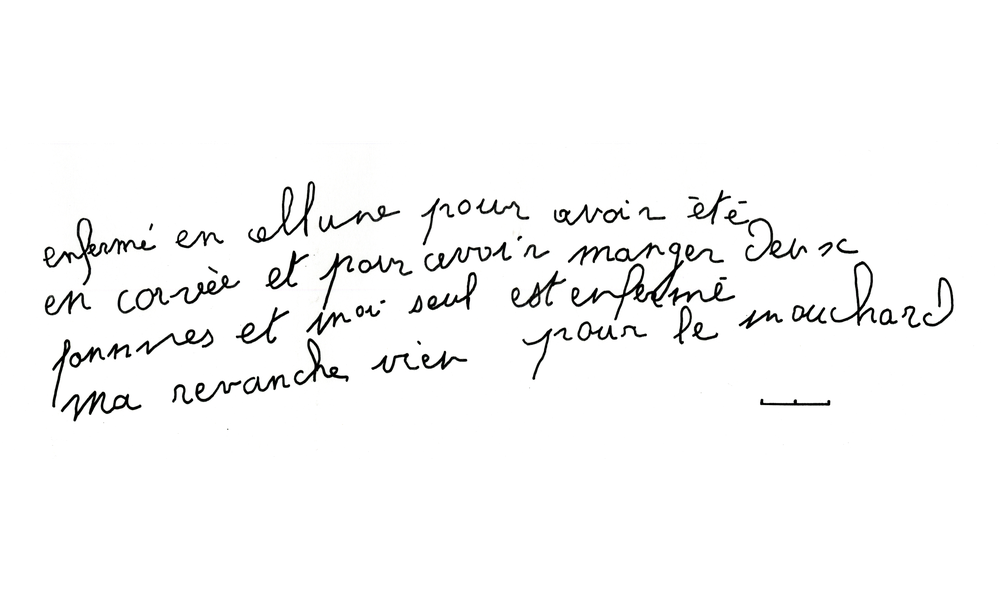 enfermé en allune pour avoir été
en corvèe et pour avoir manger deux
pommes et moi seul est enfermé
ma revanche vien pour le mouchard